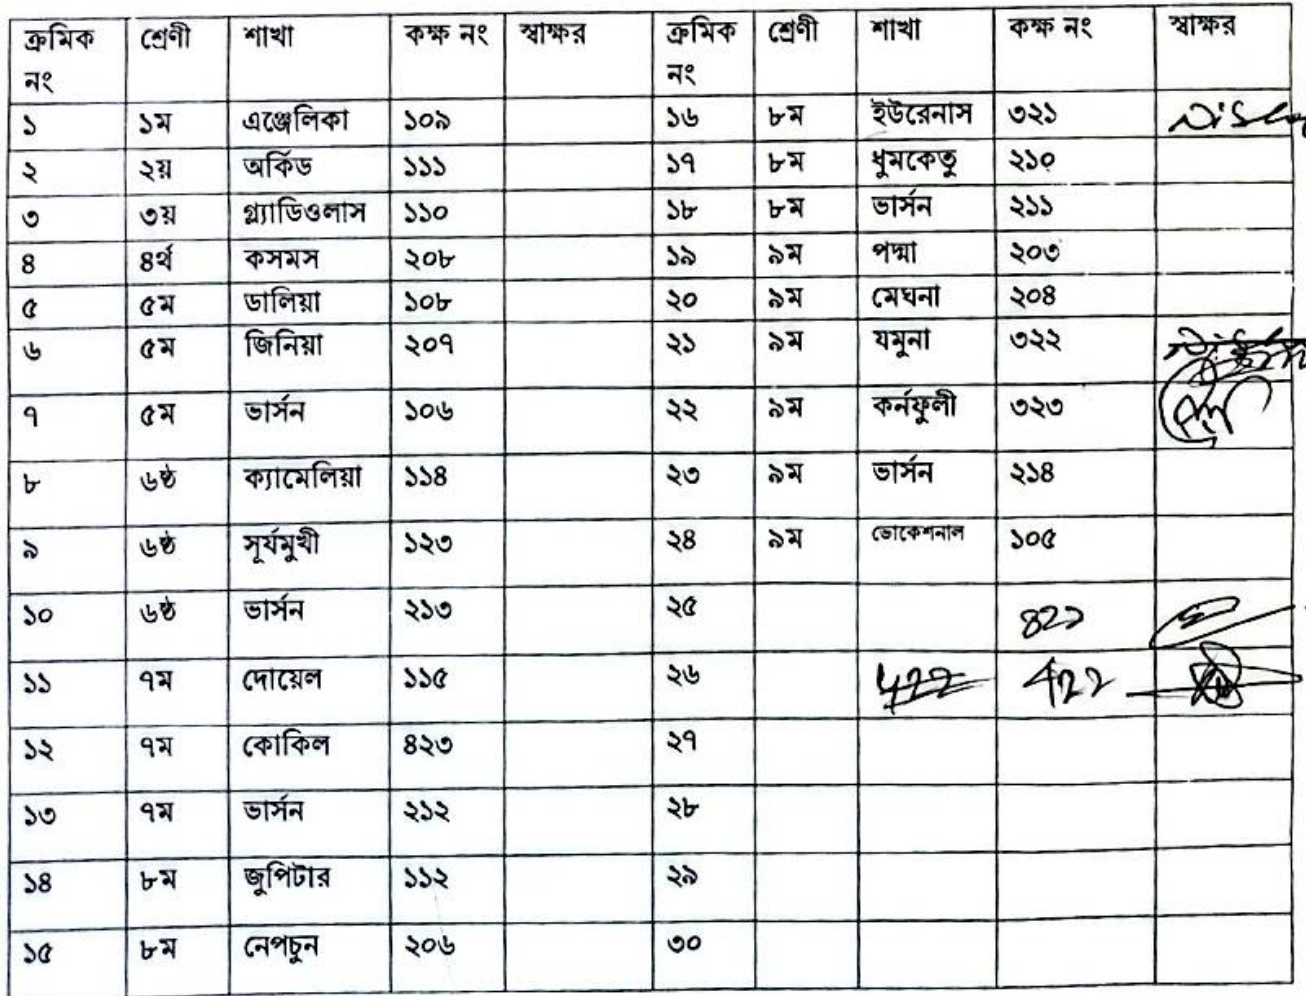 ক্রমিক নং শ্রেণী শাখা কক্ষ নং স্বাক্ষর ক্রমিক নং শ্রেণী শাখা কক্ষ নং স্বাক্ষর
১ ১ম এঞ্জেলিকা ১০৯ ১৬ ৮ম ইউরেনাস ৩২১
২ ২য় অর্কিড ১১১ ১৭ ৮ম ধুমকেতু ২১০
৩ ৩য় গ্ল্যাডিওলাস ১১০ ১৮ ৮ম ভার্সন ২১১
৪ ৪র্থ কসমস ২০৮ ১৯ ৯ম পদ্মা ২০৩
৫ ৫ম ডালিয়া ১০৮ ২০ ৯ম মেঘনা ২০৪
৬ ৫ম জিনিয়া ২০৭ ২১ ৯ম যমুনা ৩২২
৭ ৫ম ভার্সন ১০৬ ২২ ৯ম কর্নফুলী ৩২৩
৮ ৬ষ্ঠ ক্যামেলিয়া ১১৪ ২৩ ৯ম ভার্সন ২১৪
৯ ৬ষ্ঠ সূর্যমুখী ১২৩ ২৪ ৯ম ভোকেশনাল ১০৫
১০ ৬ষ্ঠ ভার্সন ২১৩ ২৫ ৪২১
১১ ৭ম দোয়েল ১১৫ ২৬ 422 422
১২ ৭ম কোকিল ৪২৩ ২৭
১৩ ৭ম ভার্সন ২১২ ২৮
১৪ ৮ম জুপিটার ১১২ ২৯
১৫ ৮ম নেপচুন ২০৬ ৩০